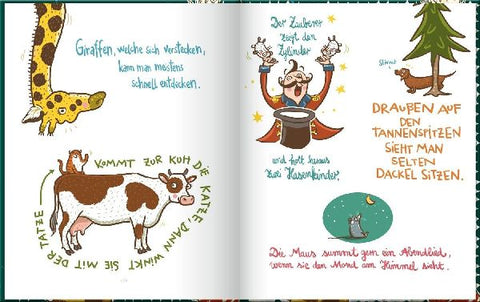 Giraffen, welche sich verstecken,
kann man meistens
schnell entdecken.
KOMMT ZUR KUH DIE KATZE, DANN WINKT SIE MIT DER TATZE
Der Zauberer
den
Zylinder
und holt heraus
zwei Hasenkinder.
DRAUẞEN AUF
DEN
TANNENSPITZEN
SIEHT MAN
SELTEN
DACKEL SITZEN.
Die Maus summt gern ein Abendlied,
wenn sie den Mond am Himmel sieht.